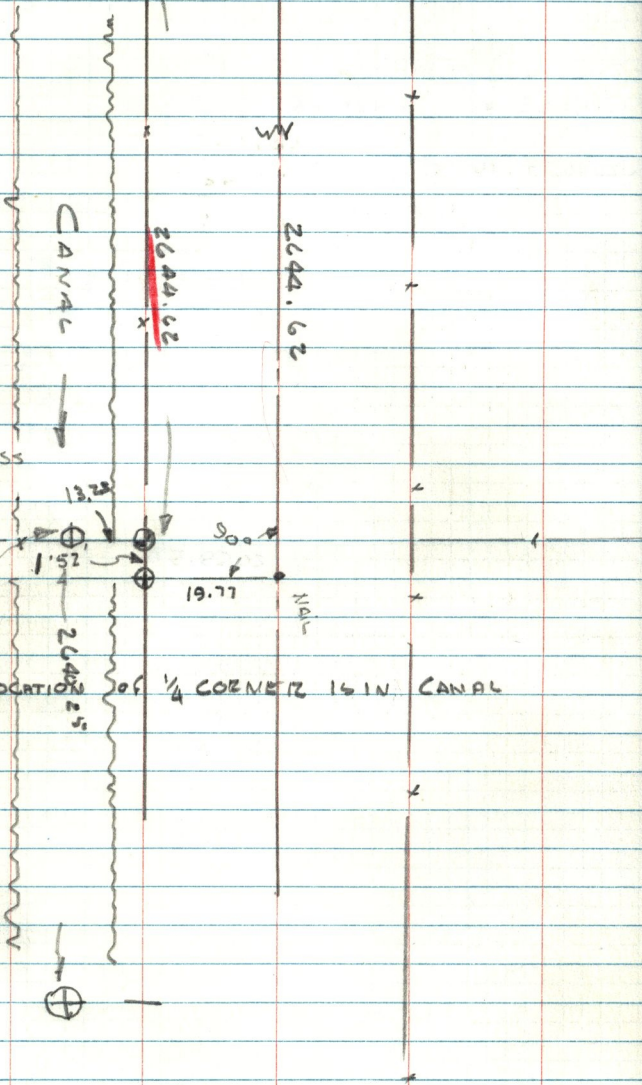 CANAL
2644.62
2644.62
SS
13.25
90°
1.52
19.77
NAIL
OCATION OF 1/4 CORNER IS IN CANAL